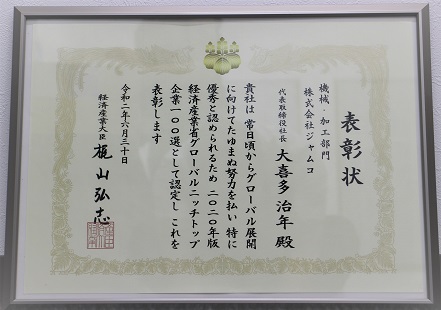 表彰状
機械・加工部門
株式会社ジャムコ
代表取締役社長
大喜多治年殿
貴社は常日頃からグローバル展開
に向けてたゆまぬ努力を払い特に
優秀と認められるため二〇二〇年版
経済産業省グローバルニッチトップ
企業一〇〇選として認定しこれを
表彰します
令和二年六月三十日
経済産業大臣
梶山弘志